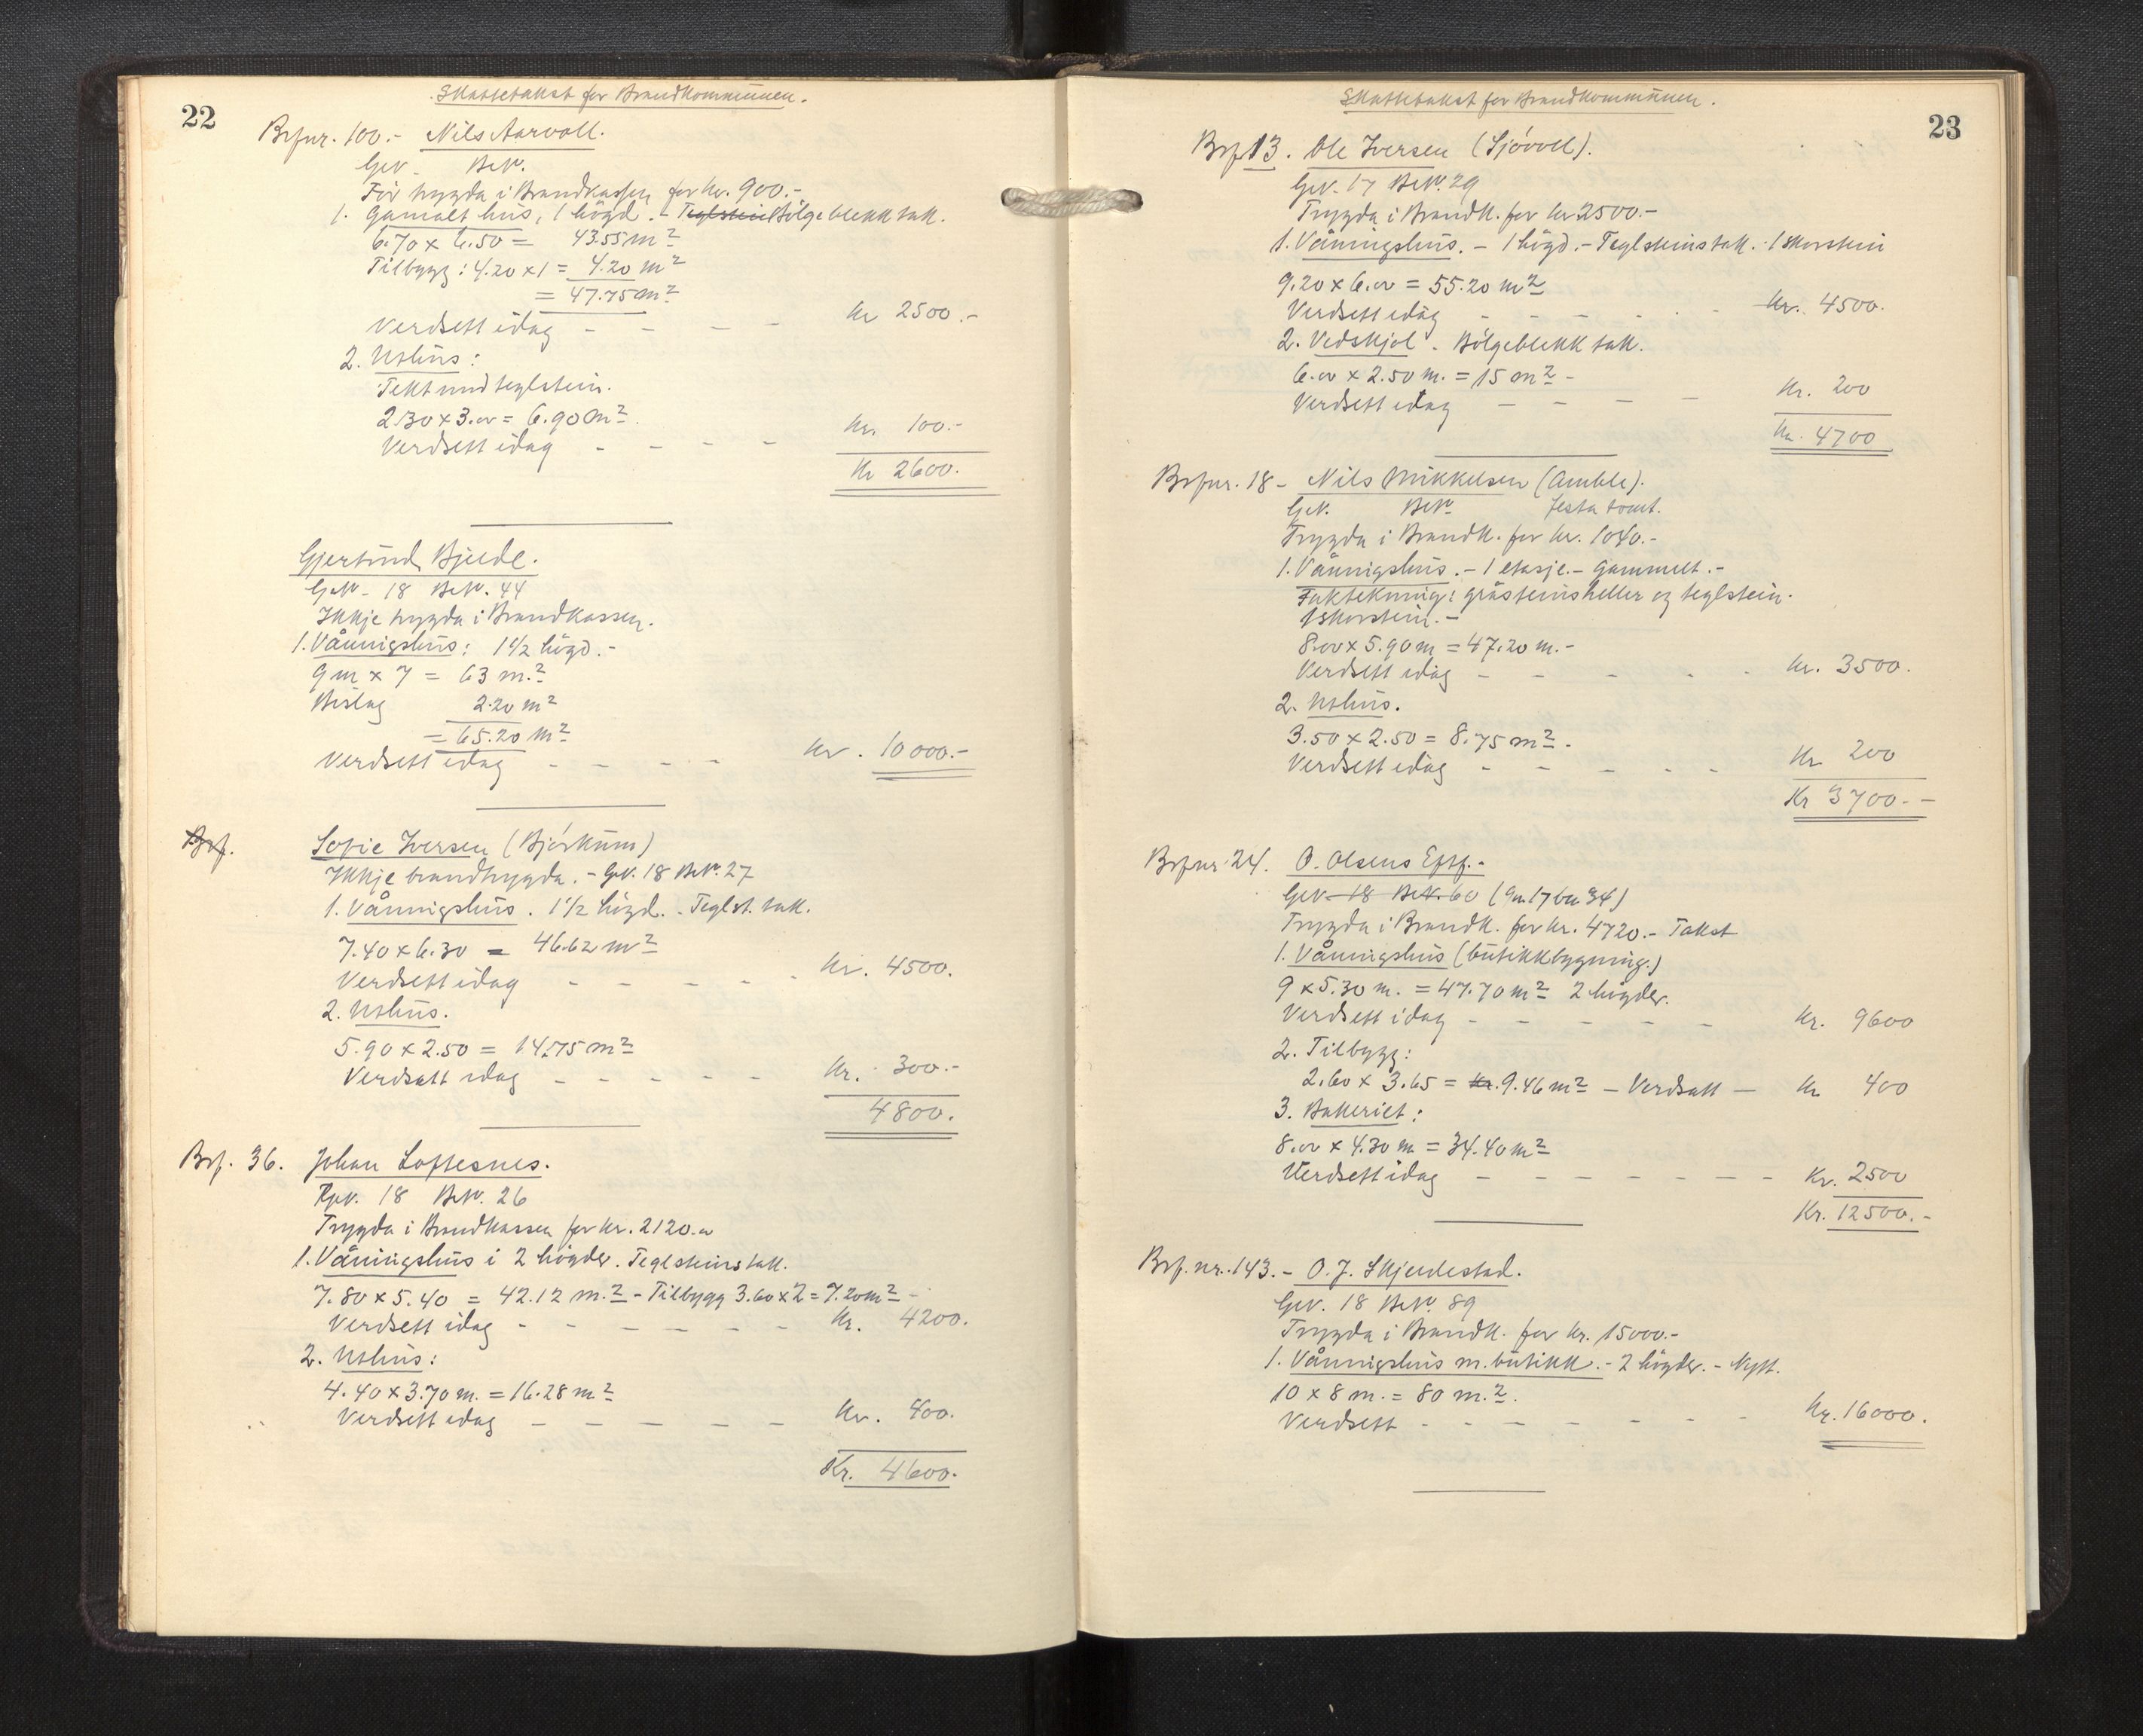 22
Skattetakst for Brandkommunen.
Brfnr. 100.- Nils Aarvoll.
Gnr. - Bnr.
Før trygda i Brandkassen for kr. 900.-
1. Gamalt hus, 1 högd. - Teglstein Bölgeblekk tak.
6.70 x 6.50 = 43.55 m²
Tilbygg: 4.20 x 1 = 4.20 m²
= 47.75 m²
Verdsett idag - - - - kr 2500.-
2. Uthus:
Tekt med teglstein.
2.30 x 3.00 = 6.90 m².
Verdsett idag - - - - kr. 100.-
Kr 2600.
Gjertrud Bjelde.
Gnr. 18 Bnr. 44
Ikkje trygda i Brandkassen.
1. Våningshus: 1 1/2 högd.-
9 m x 7 = 63 m.²
Bislag 2.20 m²
= 65.20 m²
Verdsett idag - - - - kr. 10000.-
Brf.
Sofie Iversen (Bjørkum)
Ikkje brandtrygda. - Gnr. 18 Bnr. 27
1. Våningshus. 1 1/2 högd. - Teglst. tak.
7.40 x 6.30 = 46.62 m²
Verdsett idag - - - - - kr. 4500.
2. Uthus.
5.90 x 2.50 = 14.75 m²
Verdsatt idag - - - - - kr. 300.-
4800.
Brf. 36. Johan Loftesnes.
Gnr. 18 Bnr. 26
Trygda i Brandkassen for kr. 2120.00
1. Våningshus i 2 högder. Teglsteinstak.
7.80 x 5.40 = 42.12 m.² - Tilbygg 3.60 x 2 = 7.20 m² -
Verdsett idag - - - - - - kr. 4200.
2. Uthus:
4.40 x 3.70 m. = 16.28 m²
Verdsett idag - - - - - kr. 400.
Kr. 4600.
23
Skattetakst for Brandkommunen.
Brf 13. Ole Iversen (Sjövoll).
Gnr. 17 Bnr. 29
Trygda i Brandk. for kr 2500.-
1. Våningshus. - 1 högd. - Teglsteinstak. 1 skorstein
9.20 x 6.00 = 55.20 m²
Verdsett idag - - - - - - kr. 4500.
2. Vedskjol. Bölgeblekk tak.
6.00 x 2.50 m. = 15 m² -
Verdsett idag - - - - kr. 200
Kr. 4700
Brfnr. 18 - Nils Mikkelsen (Amble).
Gnr. Bnr. festa tomt.
Trygda i Brandk. for kr. 1040.-
1. Våningshus. - 1 etasje. - Gammelt. -
Taktekning: gråsteinsheller og teglstein.
1 skorstein. -
8.00 x 5.90 m = 47.20 m. -
Verdsett idag - - - - - kr. 3500.
2. Uthus.
3.50 x 2.50 = 8.75 m².
Verdsett idag - - - - - kr 200
Kr 3700.-
Brfnr. 24. O. Olsens Eftf. -
Gnr. 18 Bnr. 60 (Gn. 17 bn 34)
Trygda i Brandk. for kr. 4720.- Takst
1. Våningshus (butikkbygning.)
9 x 5.30 m. = 47.70 m² 2 högder.
Verdsett idag - - - - - kr. 9600
2. Tilbygg:
2.60 x 3.65 = kr. 9.46 m² - Verdsatt - kr 400
3. Bakeriet:
8.00 x 4.30 m = 34.40 m²
Verdsett idag - - - - - - - kr. 2500
Kr. 12500.-
Brf. nr. 143. - O. J. Skjeldestad.
Gnr. 18 Bnr. 89
Trygda i Brandk. for kr. 15000.-
1. Våningshus m. butikk. - 2 högder. - Nytt.
10 x 8 m. = 80 m.².
Verdsett - - - - - - - kr. 16000.